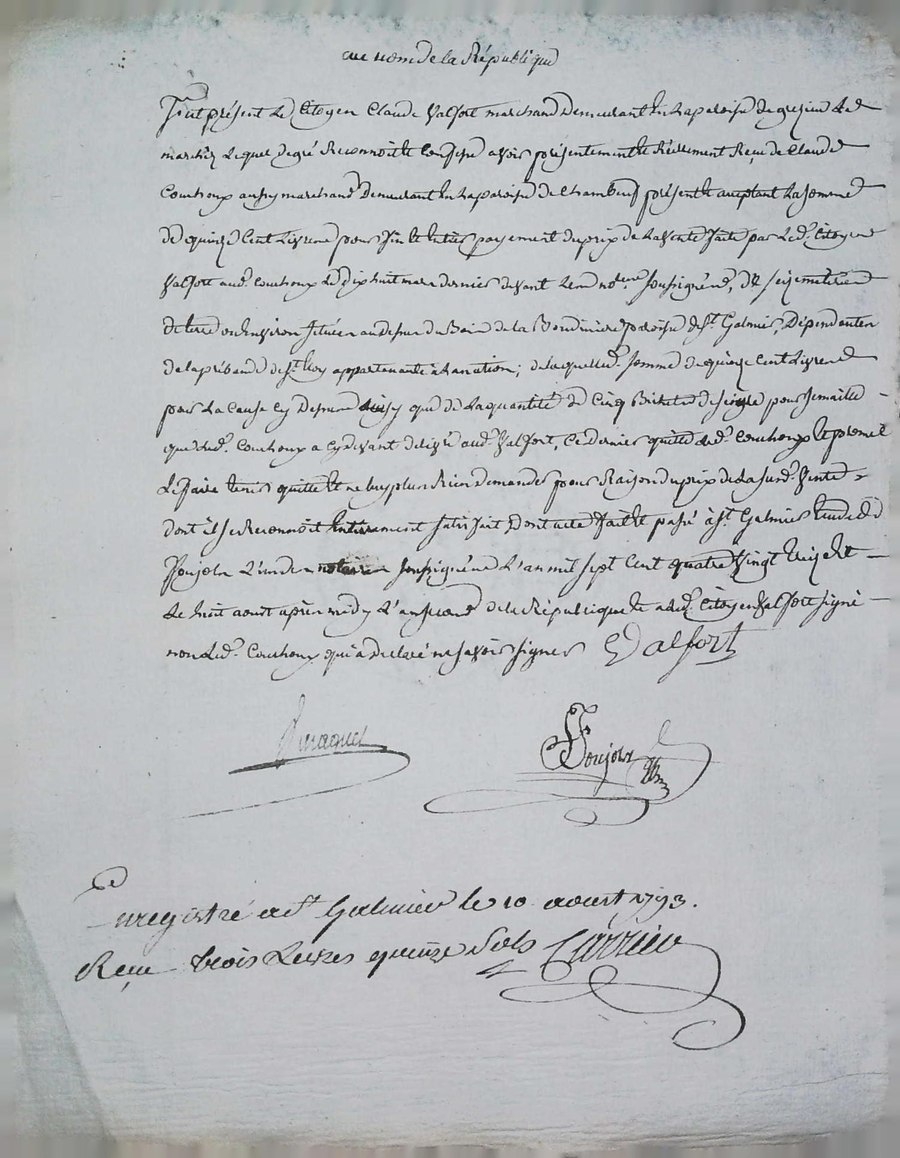 au nom de la République
fut présent Le Citoyen Claude Valfort marchand Demeurant En La paroisse de grezieu Le
marché Lequel de gré Reconnoit Et Confesse avoir présentement Et Réellement Reçu de Claude
Couchoux aussy marchand Demeurant En La paroisse de Chambeuf présent Et acceptant La somme
de quinze Cent Livres pour fin Et Entier payement du prix de La Vente faite par Led. Citoyen
Valfort aud. Couchoux Le dix huit mars dernier devant Les not. soussignés, de seize meterées
de terre ou Environ située au dessus du Bois de la Bondinière paroisse de St. Galmier, Dépendantes
de la prébande de St. Eloy appartenante à La nation; de laquelle d. somme de quinze Cent Livres
pour La Cause Cy Dessus ainsy que de La quantité de Cinq Bichets de seigle pour semaille
que led. Couchoux a Cy devant délivré aud. Valfort, Ce dernier quitte led. Couchoux Et promet
L'En faire tenir quitte Et ne luy plus Rien demander pour Raison du prix de La susd. Vente
dont il se Reconnoit Entierement satisfait Dont acte fait Et passé à St. Galmier Etude de
Poujols L'un des notaires soussignés L'an mil sept Cent quatre Vingt treize Et
Le huit aoust après midy L'an second de la République Et a led. Citoyen Valfort signé
non Led. Couchoux qui a declaré ne savoir signer C Valfort
Poujols
Enregistré a St. Galmier le 10 aoust 1793.
Reçu trois Livres quinze Sols Carrier